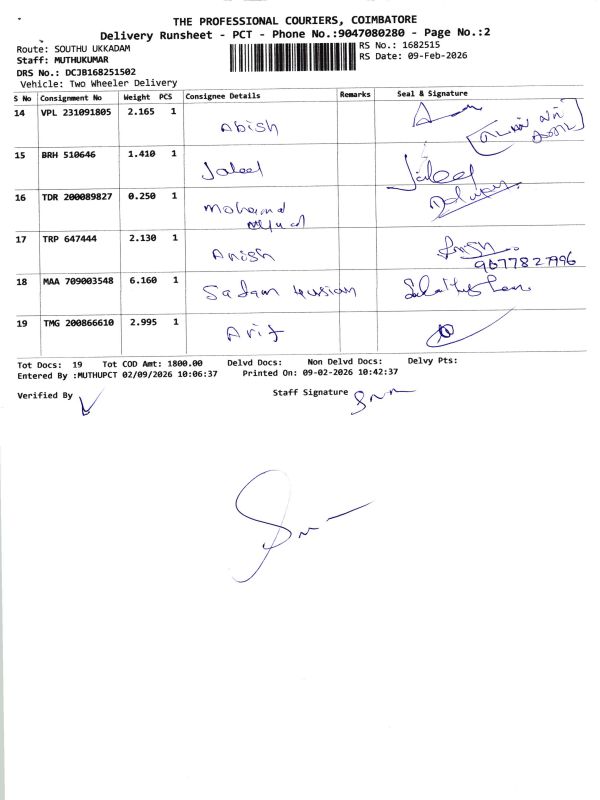 THE PROFESSIONAL COURIERS, COIMBATORE
Delivery Runsheet - PCT - Phone No.:9047080280 - Page No.:2
Route: SOUTHU UKKADAM
RS No.: 1682515
Staff: MUTHUKUMAR
RS Date: 09-Feb-2026
DRS No.: DCJB168251502
Vehicle: Two Wheeler Delivery
S No Consignment No Weight PCS Consignee Details Remarks Seal & Signature
14 VPL 231091805 2.165 1 Abish
15 BRH 510646 1.410 1 Jaleel Jaleel
16 TDR 200089827 0.250 1 Mohamad
17 TRP 647444 2.130 1 Anish
9677827996
18 MAA 709003548 6.160 1 Sadam Husian
19 TMG 200866610 2.995 1 Arif
Tot Docs: 19 Tot COD Amt: 1800.00 Delvd Docs: Non Delvd Docs: Delvy Pts:
Entered By :MUTHUPCT 02/09/2026 10:06:37 Printed On: 09-02-2026 10:42:37
Verified By
Staff Signature